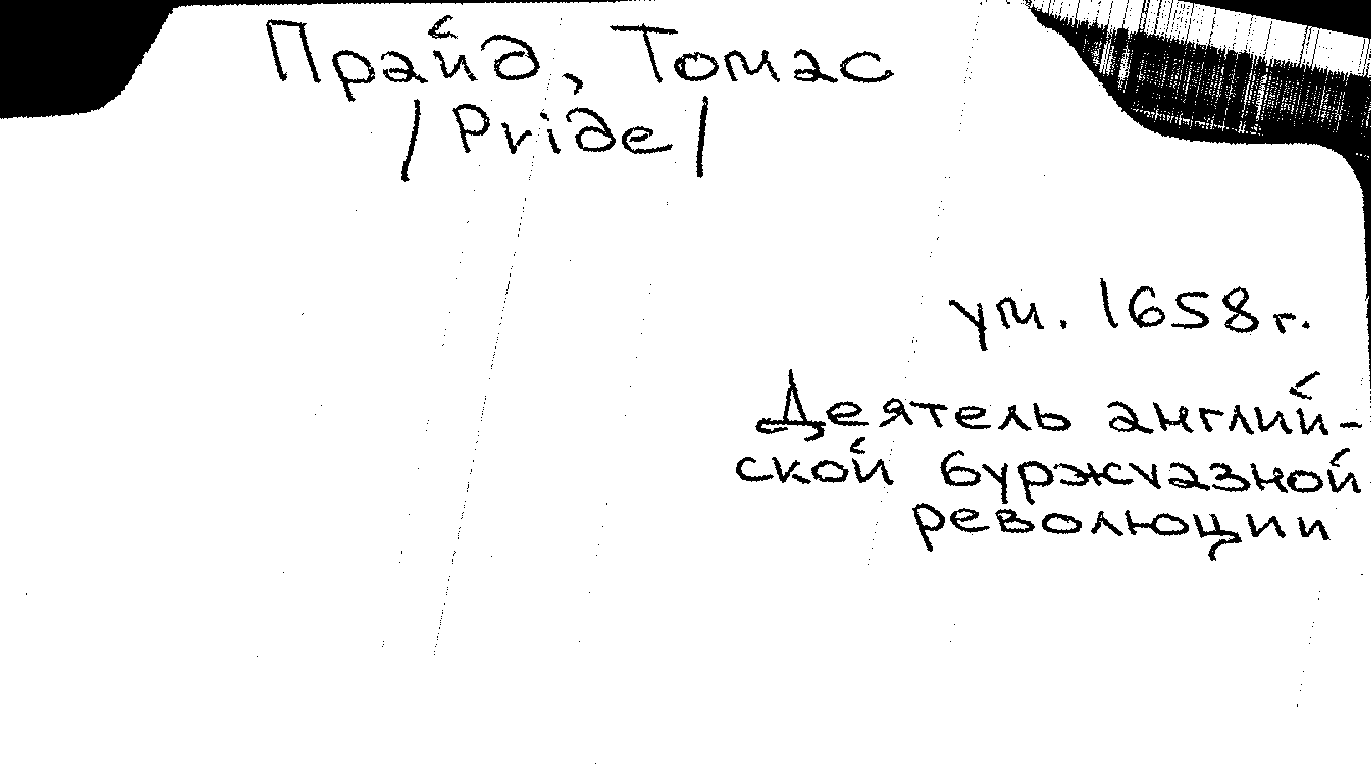 Прайд, Томас
/Pride/
ум. 1658 г.
Деятель англий-
ской буржуазной
революции